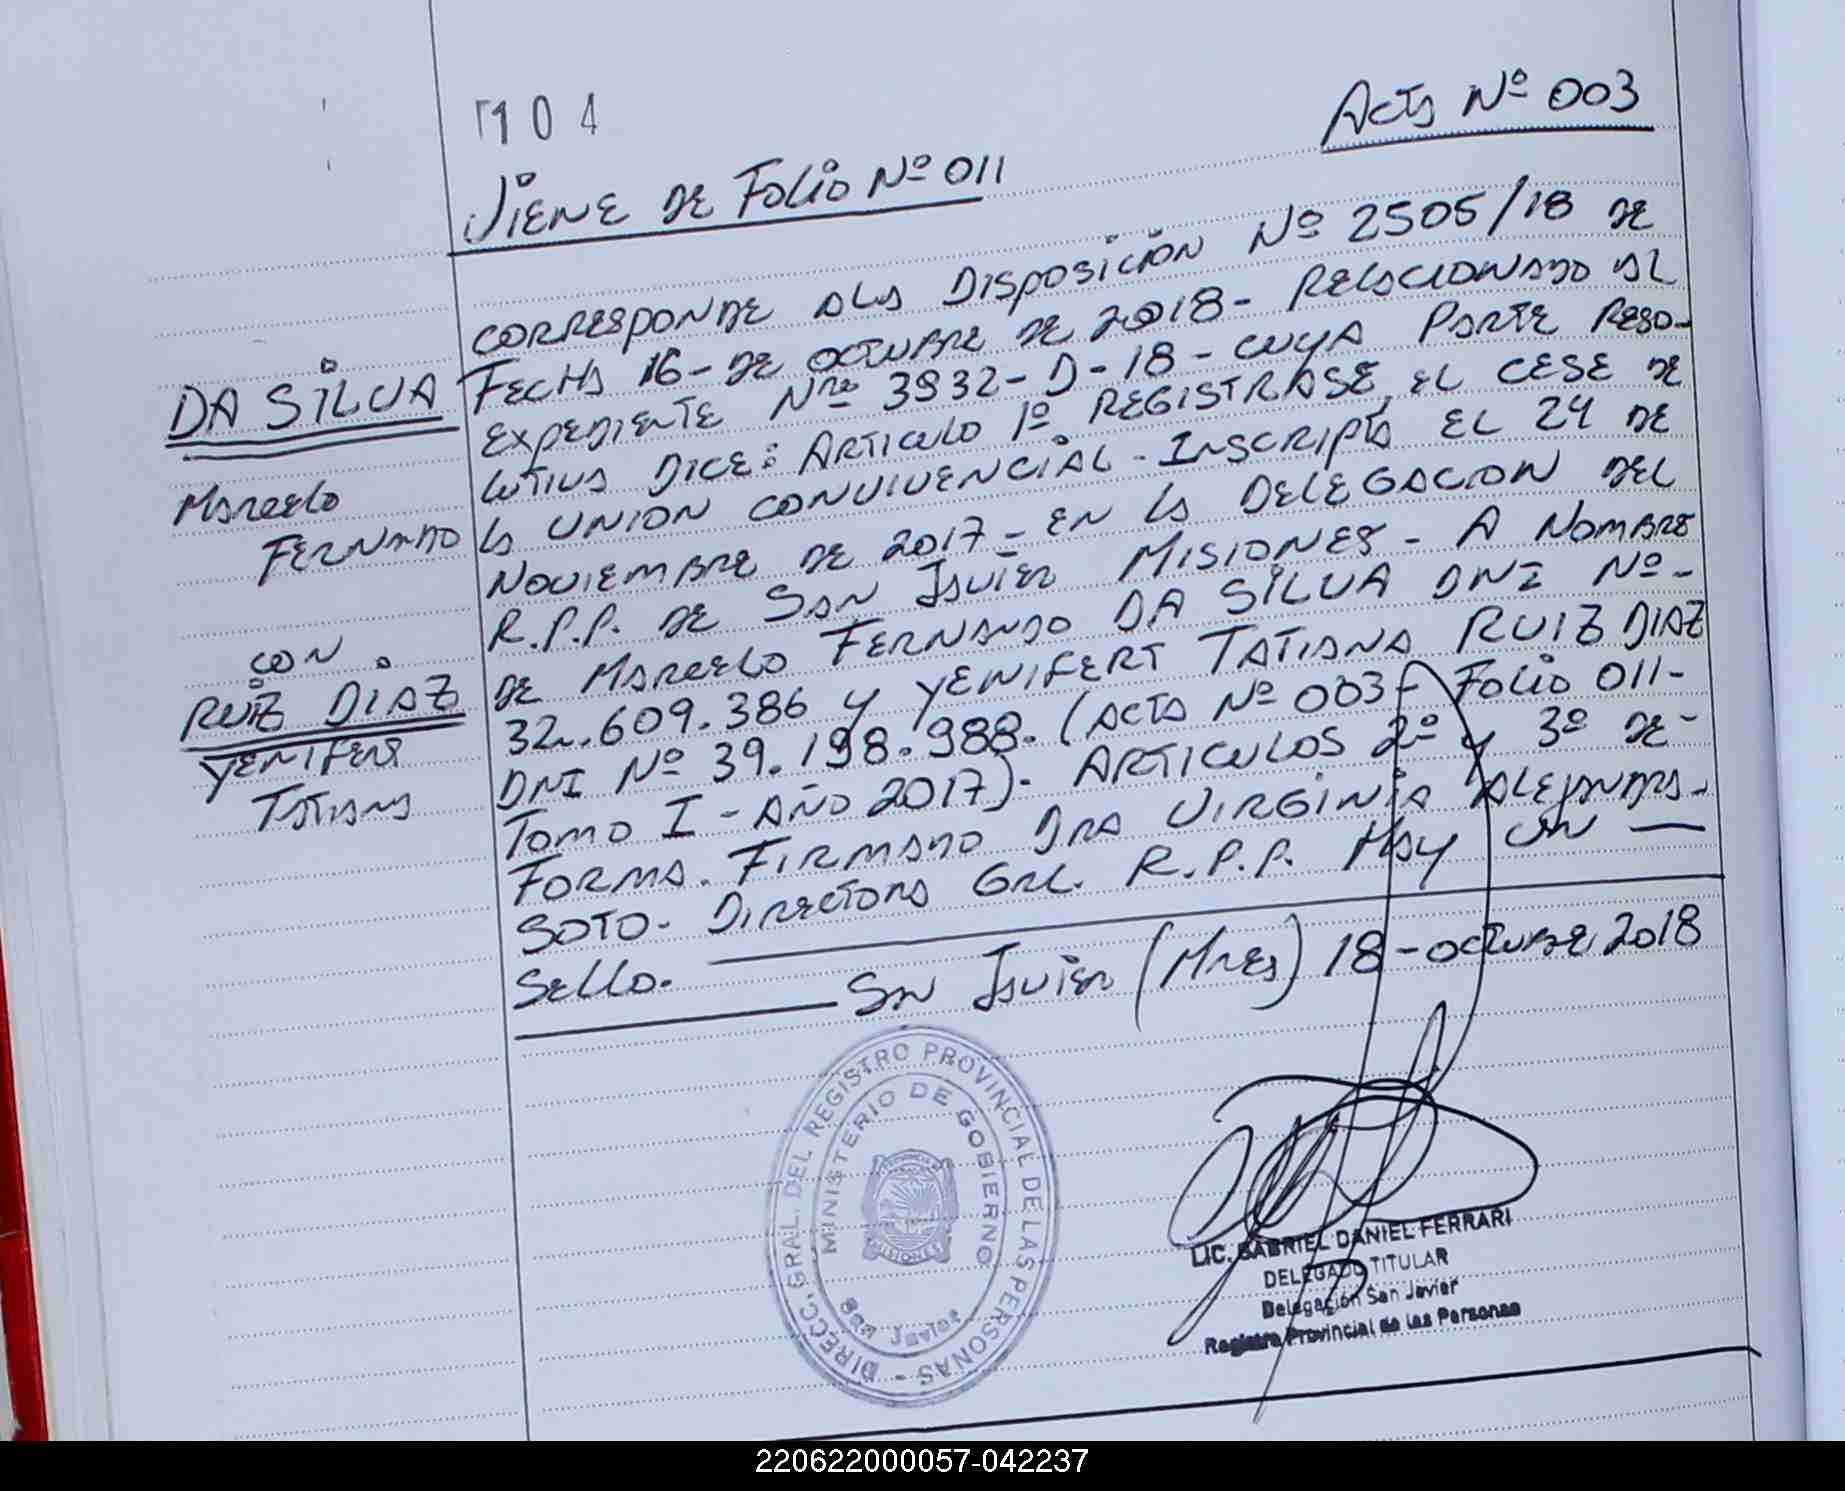 104
Acta Nº 003
VIENE DE FOLIO Nº 011
CORRESPONDE ALA DISPOSICIÓN Nº 2505/18 DE
FECHA 16- DE OCTUBRE DE 2018- RELACIONADO AL
EXPEDIENTE Nro 3932-D-18- CUYA PARTE RESO-
LUTIVA DICE: ARTICULO 1º REGISTRASE, EL CESE DE
LA UNION CONVIVENCIAL. INSCRIPTA EL 24 DE
NOVIEMBRE DE 2017- EN LA DELEGACION DEL
R.P.P. DE SAN JAVIER MISIONES- A NOMBRE
DE MARCELO FERNANDO DA SILVA DNI Nº-
32.609.386 y YENIFERT TATIANA RUIZ DIAZ
DNI Nº 39.198.988. (ACTA Nº 003- FOLIO 011-
TOMO I - AÑO 2017). ARTICULOS 2º y 3º DE-
FORMA. FIRMADO DRA VIRGINIA ALEJANDRA-
SOTO- DIRECTORA GRL. R.P.P. HAY UN
SELLO.
SAN JAVIER (Mnes) 18-OCTUBRE 2018
DA SILVA
MARCELO
FERNANDO
CON
RUIZ DIAZ
YENIFERT
TATIANA
DIRECC. GRAL. DEL REGISTRO PROVINCIAL DE LAS PERSONAS -
MINISTERIO DE GOBIERNO
MISIONES
San Javier
LIC. GABRIEL DANIEL FERRARI
DELEGADO TITULAR
Delegación San Javier
Registro Provincial de las Personas
220622000057-042237